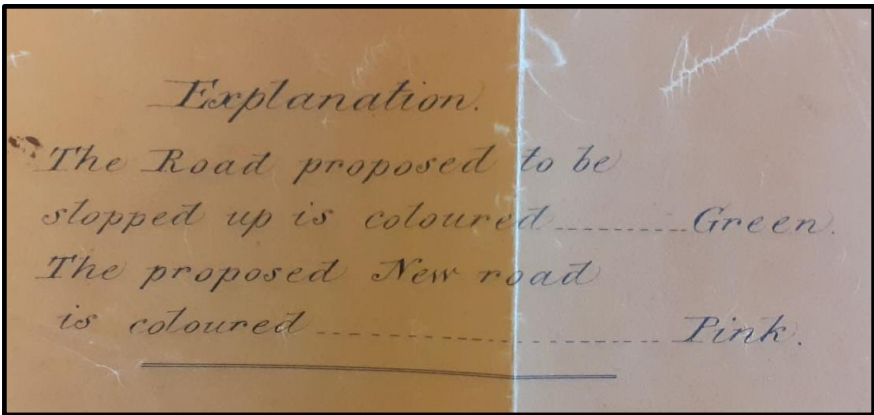 Explanation.
The Road proposed to be
stopped up is coloured --------- Green.
The proposed New road
is coloured ------------------------ Pink.